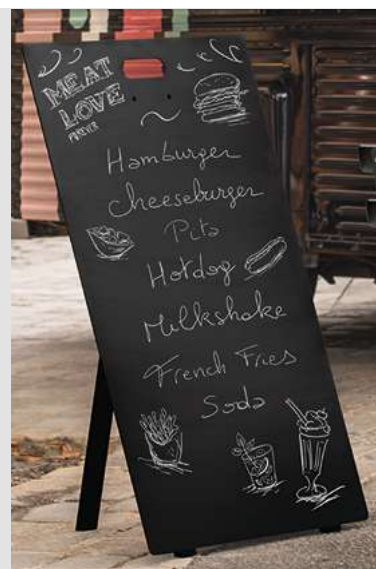 MEAT
LOVE
FOREVER
Hamburger
cheeseburger
Pita
Hotdog
Milkshake
French Fries
Soda